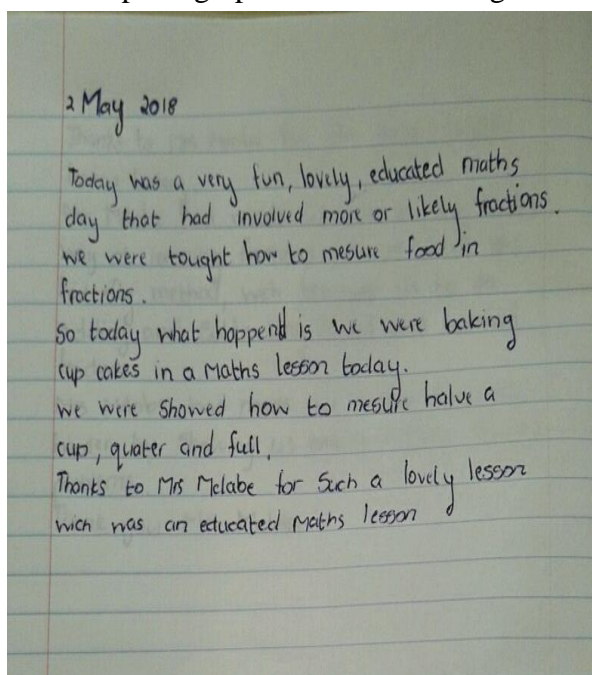 2 May 2018
Today was a very fun, lovely, educated maths
day that had involved more or likely fractions.
we were tought how to mesure food in
fractions.
So today what happend is we were baking
cup cakes in a Maths lesson today.
we were Showed how to mesure halve a
cup, quater and full,
Thanks to Mrs Mclabe for Such a lovely lesson
wich was an educated Maths lesson